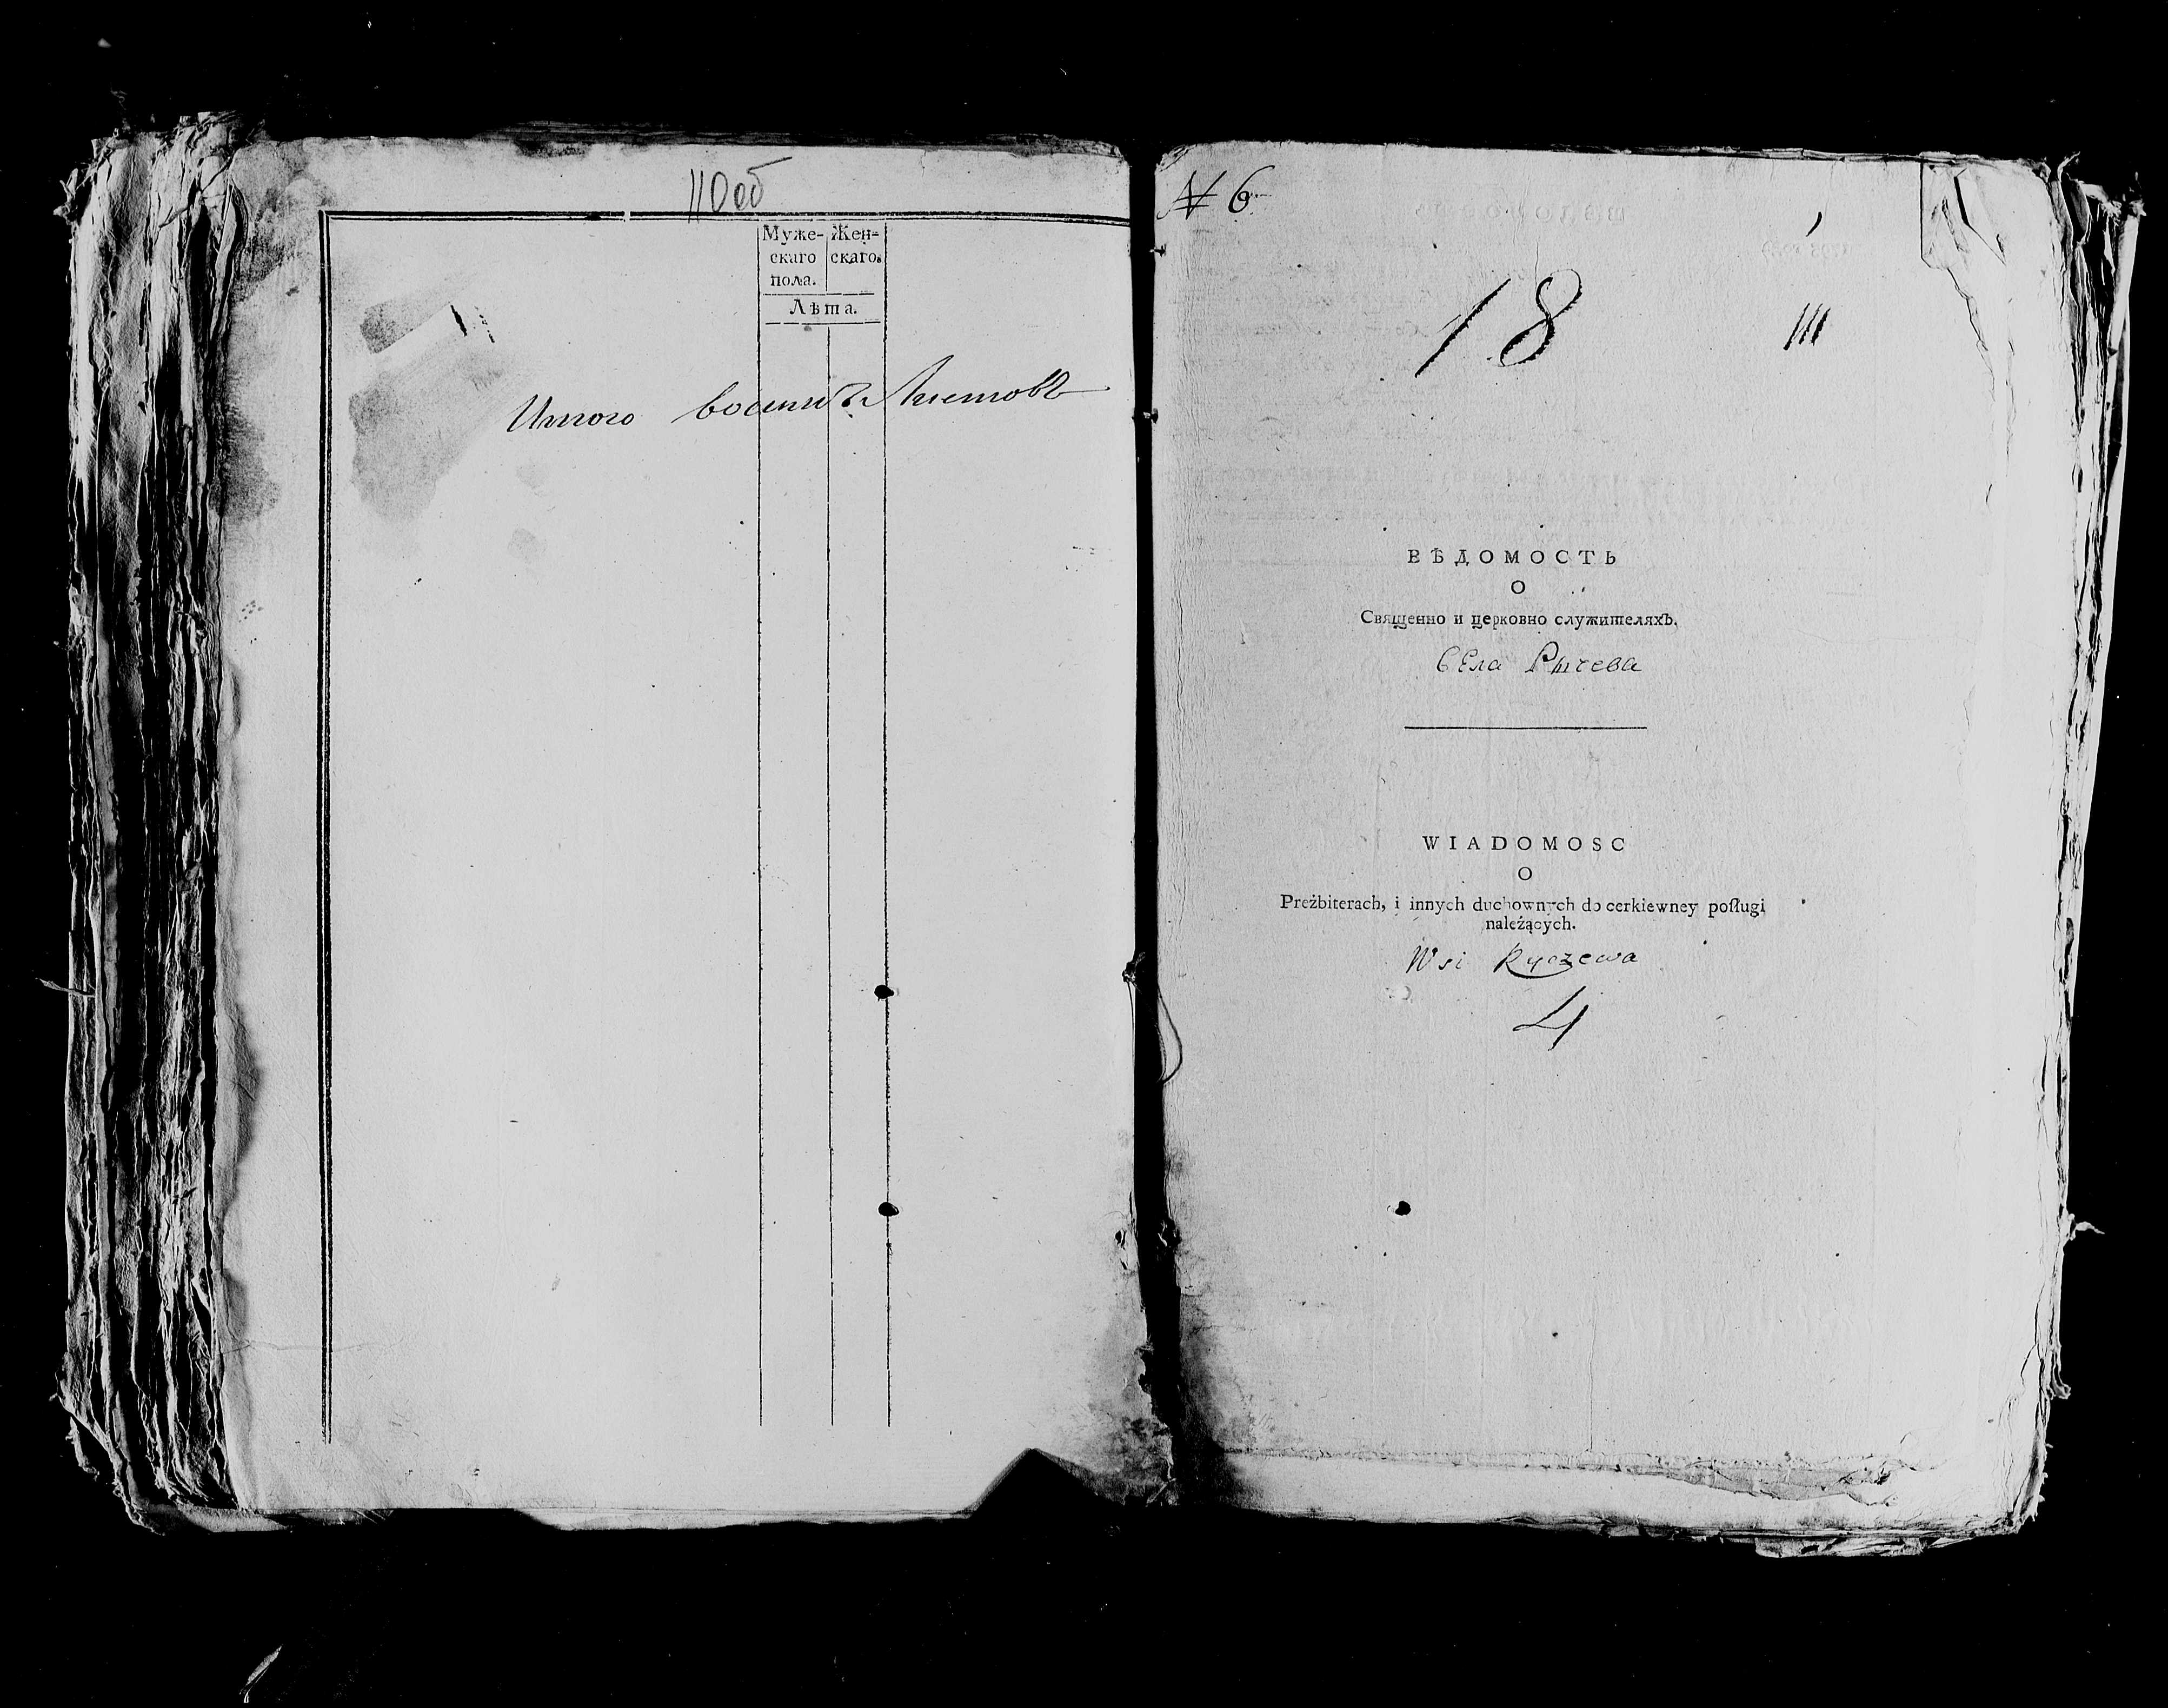 110об
Муже- Жен-
скаго скаго.
пола.
Лѣта.
Итого восемь Листовъ
№ 6
18
111
ВѢДОМОСТЬ
О
Священно и церковно служителяхъ.
Села Рычева
WIADOMOSC
O
Preżbiterach, i innych duchownych do cerkiewney poſługi
należących.
Wsi Ryczewa
4